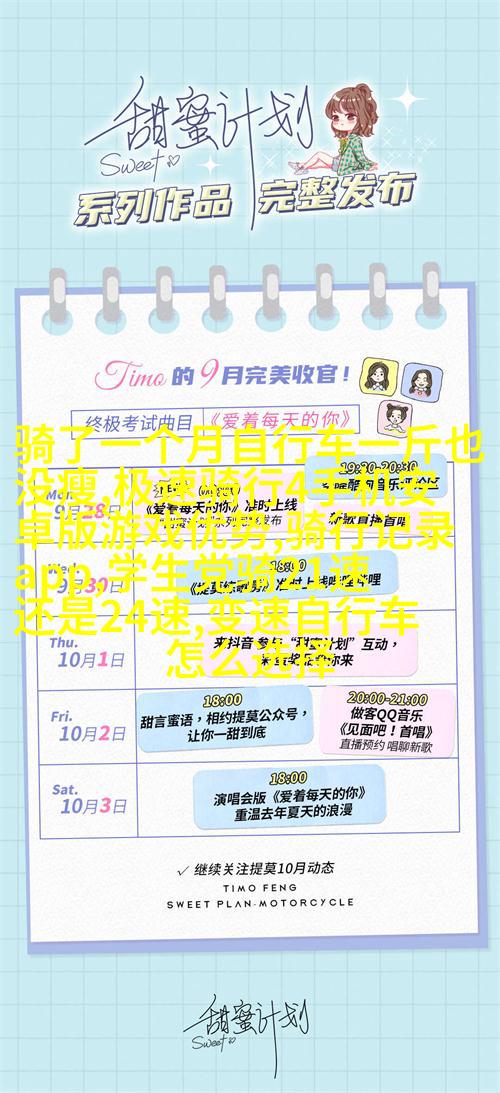 甜蜜计划
Sweet
系列作品 完整发布
Timo的9月完美收官!
终极考试曲目 《爱着每天的你》
骑了一个月自行车一斤也
没瘦,极速骑行4手机安
卓版游戏优势,骑行记录
app,学生党骑21速
还是24速,变速自行车
怎么选择
Mon.
9月28日
《爱着每天的你》准时上线
19:30-20:30
新歌直播首唱
9月30日
18:00
Thu.
10月1日
来抖音参与“甜蜜计划”互动,
Fri.
10月2日
18:00
甜言蜜语,相约提莫公众号,
让你一甜到底
20:00-21:00
做客QQ音乐
《见面吧!首唱》
直播预约 唱聊新歌
Sat.
10月3日
18:00
演唱会版《爱着每天的你》
重温去年夏天的浪漫
✓ 继续关注提莫10月动态
TIMO FENG
SWEET PLAN-MOTORCYCLE
甜蜜计划
Sweet